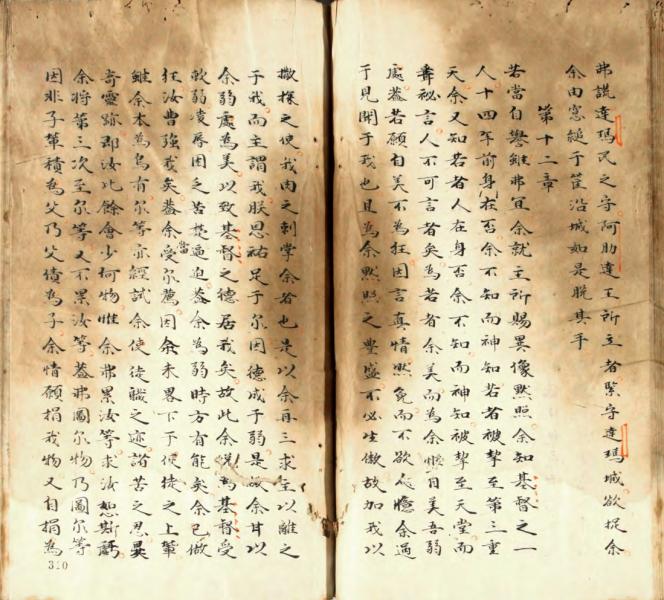 弗謊達瑪氏之守阿助達王所主者緊守達瑪城欲捉余
余由窓縋于筐沿城如是脫其手
第十二章
若當自譽雖弗宜余就主所賜異像黙照余知基督之一
人十四年前身在否余不知而神知若者被挈至第三重
天余又知若者人在身否余不知而神知被挈至天堂而
聞秘言人不可言者矣為若者余美而為余惟自美吾弱
處蓋若願自美不為狂因言真情然免而不欲人憶余過
于見聞于我也且為余黙照之豐盛不必生傲故加我以
撒探之使我肉之刺掌余者也是以余再三求主以離之
于我而主謂我朕恩祐足于尔因德成于弱是故余甘以
余弱處為美以致基督之德居我矣故此余悅為基督受
軟弱凌辱困乏苦楚逼迫蓋余為弱時方有能矣余已做
狂汝曹強我矣蓋余當受尔薦因余未畧下于使徒之上輩
雖余本為烏有尔等亦經試余使徒職之迹諸苦之忍異
奇靈跡即汝比餘會少何物惟余弗累汝等求汝恕斯
余將第三次至尔等又不累汝等蓋弗圖尔物乃圖尔等
因非子輩積為父乃父債為子余情願捐我物又自捐為
310